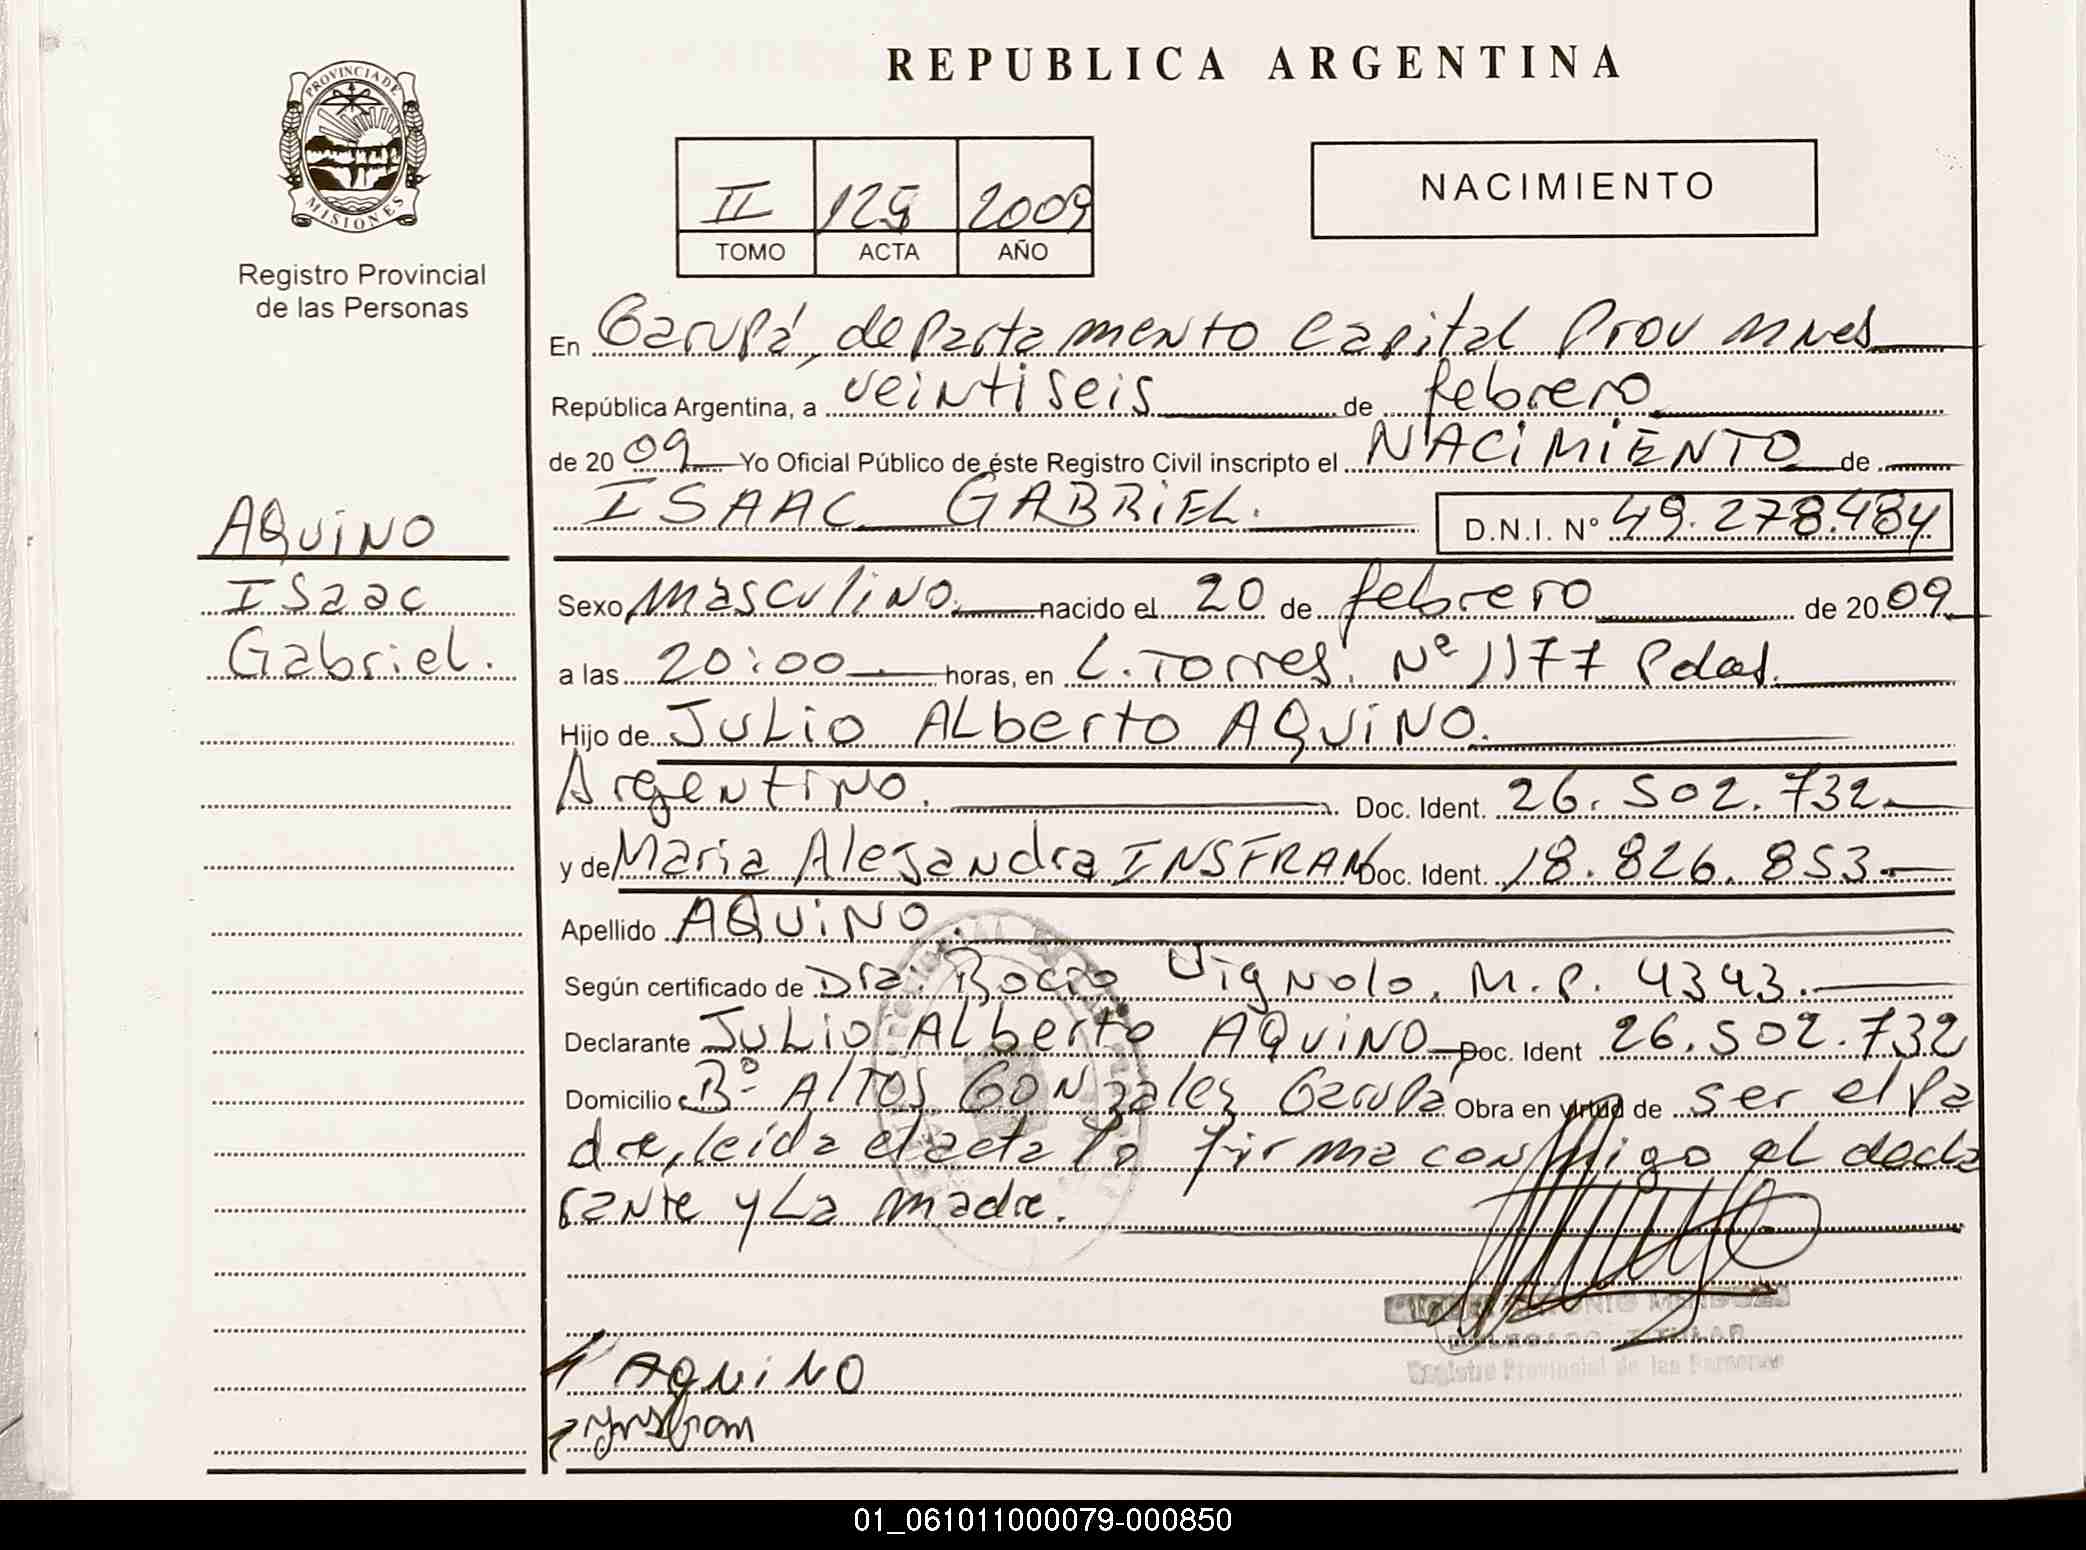 REPUBLICA ARGENTINA
PROVINCIA DE
MISIONES
Registro Provincial
de las Personas
II 2009
TOMO ACTA AÑO
NACIMIENTO
En Garupá, departamento Capital Prov Mnes
República Argentina, a veintiseis de febrero
de 2009 Yo Oficial Público de éste Registro Civil inscripto el NACIMIENTO de
ISAAC GABRIEL. D.N.I. Nº 49.278.484
AQUINO
Isaac
Gabriel.
Sexo masculino nacido el 20 de febrero de 2009
a las 20:00 horas, en L. Torres. Nº 1177 Pdas.
Hijo de Julio Alberto AQUINO.
Argentino. Doc. Ident. 26.502.732
y de Maria Alejandra INSFRAN Doc. Ident. 18.826.853
Apellido AQUINO.
Según certificado de Dra: Rocio Vignolo. M.P. 4343.
Declarante Julio Alberto AQUINO Doc. Ident 26.502.732
Domicilio Bº Altos Gonzales Garupá Obra en virtud de ser el pa
dre, leida el acta la firma conmigo el decla
rante y La madre.
ANTONIO MENDOZA
DELEGADO TITULAR
Registro Provincial de las Personas
AQUINO
Insfran
01_061011000079-000850